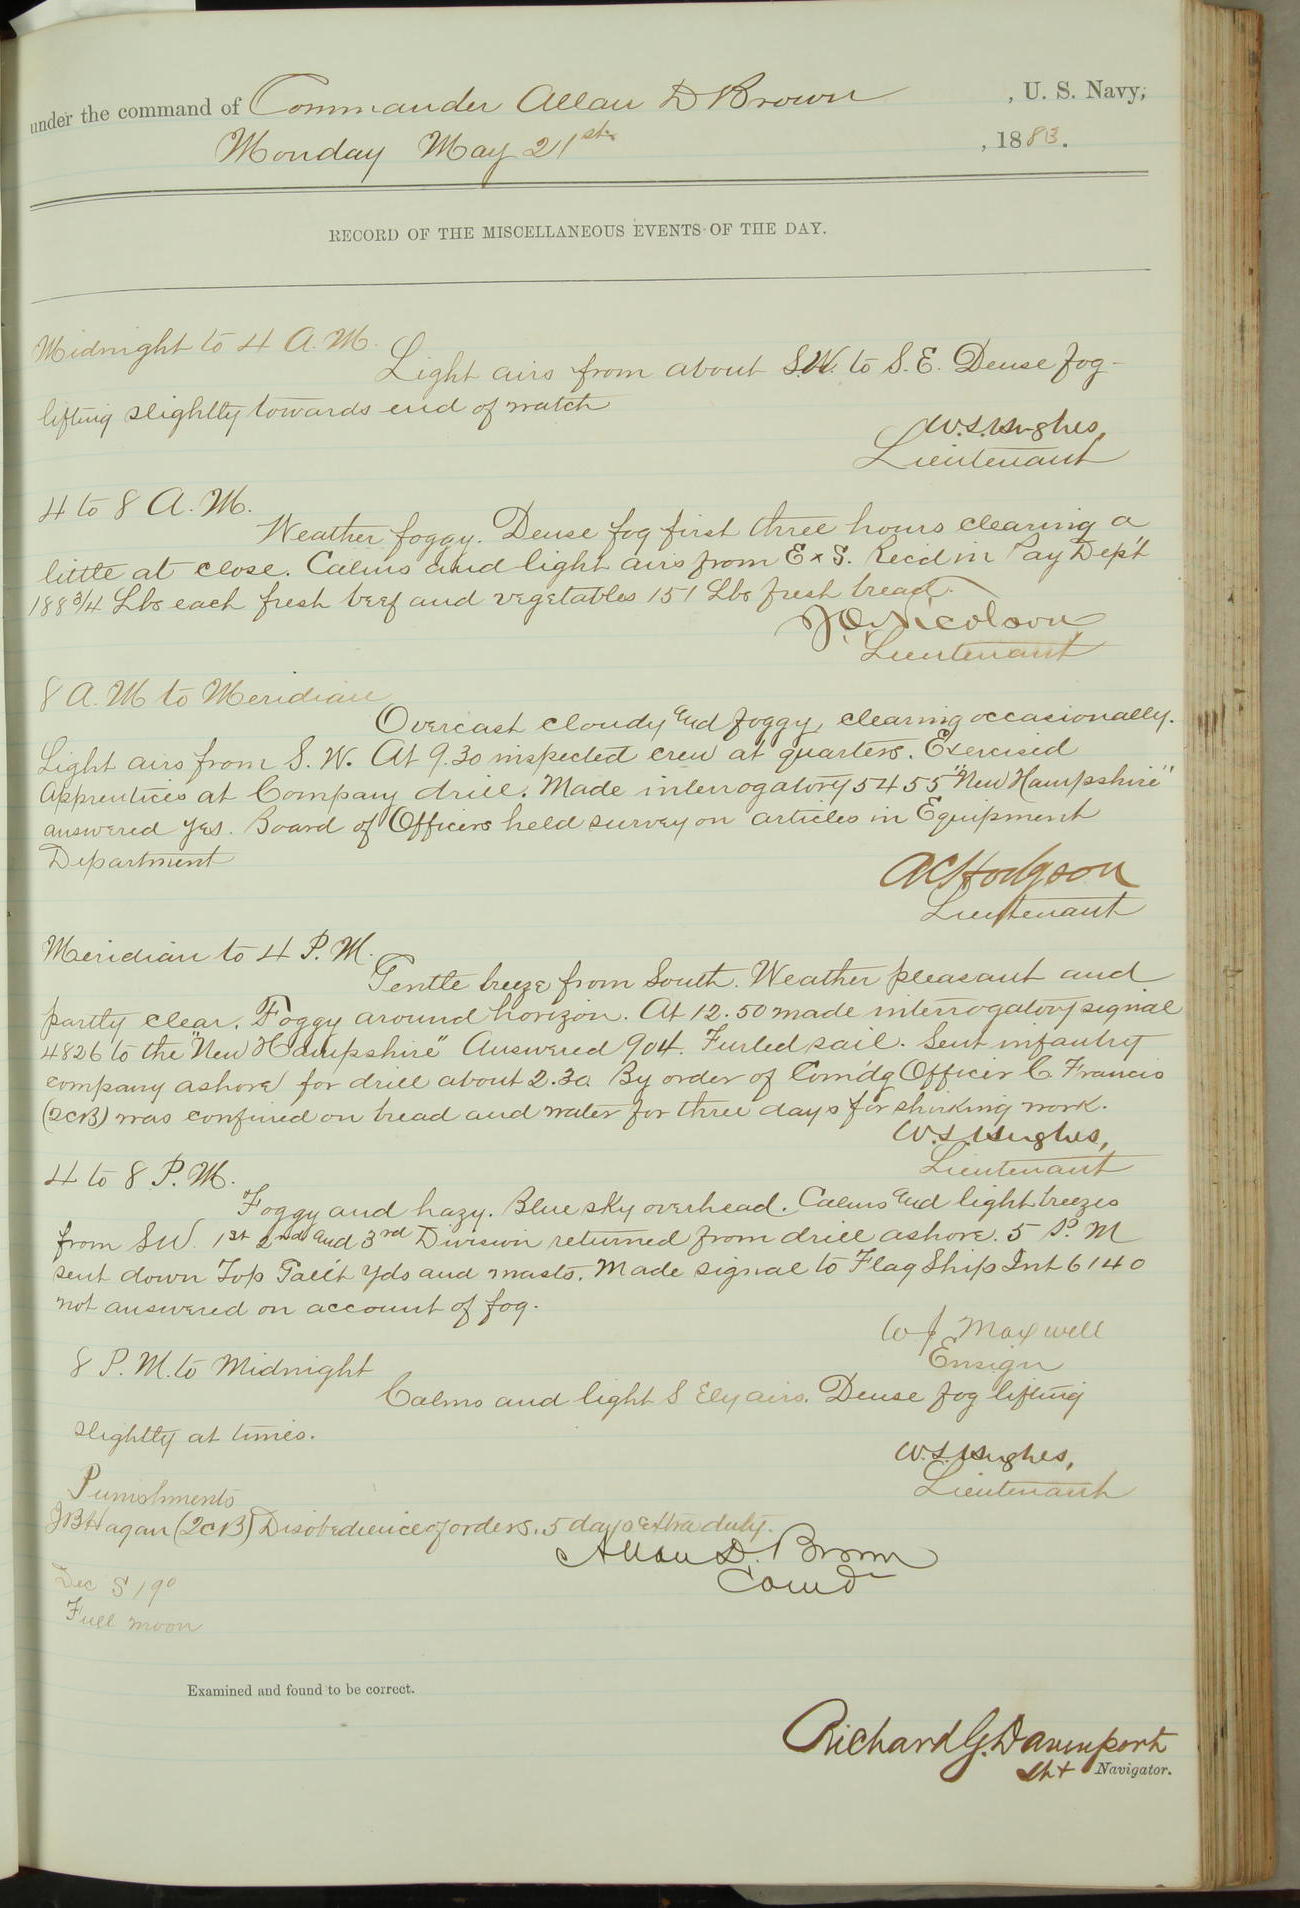 under the command of Commander Allan D Brown , U. S. Navy,
Monday May 21st , 1883.
RECORD OF THE MISCELLANEOUS EVENTS OF THE DAY.
Midnight to 4 A.M.
Light airs from about S.W. to S.E. Dense fog
lifting slightly towards end of watch
W.S. Hughes,
Lieutenant
4 to 8 A.M.
Weather foggy. Dense fog first three hours clearing a
little at close. Calms and light airs from E x S. Rec'd in Pay Dep't
188 3/4 Lbs each fresh beef and vegetables 151 Lbs fresh bread.
Nicolson
Lieutenant
8 A.M to Meridian
Overcast cloudy and foggy, clearing occasionally.
Light airs from S.W. At 9.30 inspected crew at quarters. Exercised
Apprentices at Company drill. Made interrogatory 5455 "New Hampshire"
answered yes. Board of Officers held survey on articles in Equipment
Department
A C Hodgson
Lieutenant
Meridian to 4 P.M.
Gentle breeze from South. Weather pleasant and
partly clear. Foggy around horizon. At 12.50 made interrogatory signal
4826 to the "New Hampshire" Answered 904. Furled sail. Sent infantry
company ashore for drill about 2.30 By order of Com'dg Officer C. Francis
(2CB) was confined on bread and water for three days for shirking work.
W.S. Hughes,
Lieutenant
4 to 8 P.M.
Foggy and hazy. Blue sky overhead. Calms and light breezes
from SW. 1st 2nd and 3rd Division returned from drill ashore. 5 P.M
sent down Top Gall't Yds and masts. Made signal to Flag Ship Int 6140
not answered on account of fog.
W J Maxwell
Ensign
8 P.M. to Midnight
Calms and light S Ely airs. Dense fog lifting
slightly at times.
W.S. Hughes,
Lieutenant
Punishments
J B Hagan (2CB) Disobedience of orders, 5 days extra duty.
Allan D. Brown
Comd
Dec S 19°
Full moon
Examined and found to be correct.
Richard G. Davenport
Lt Navigator.